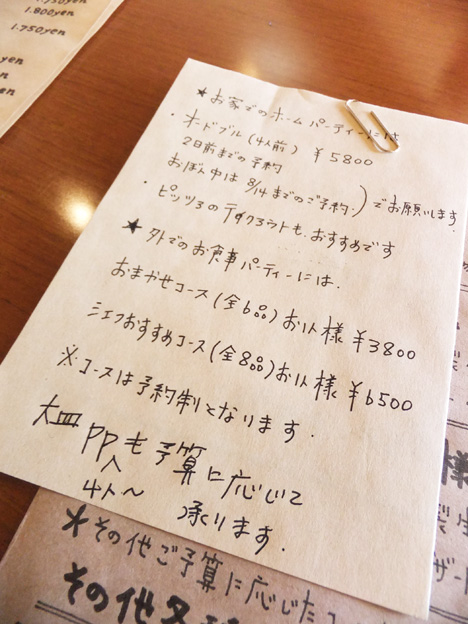 1.800yen
1.750yen
★お家でのホームパーティーには
・オードブル(4人前) ¥5800
2日前までの予約
おぼん中は8/14までのご予約.)でお願いします
・ピッツァのテイクアウトも、おすすめです
★外でのお食事パーティーには、
おまかせコース(全6品)お1人様 ¥3800
シェフおすすめコース(全8品)お1人様 ¥6500
※コースは予約制となります.
大皿PPも予算に応じて
4人〜 承ります.
*その他ご予算に応じたコ
その他